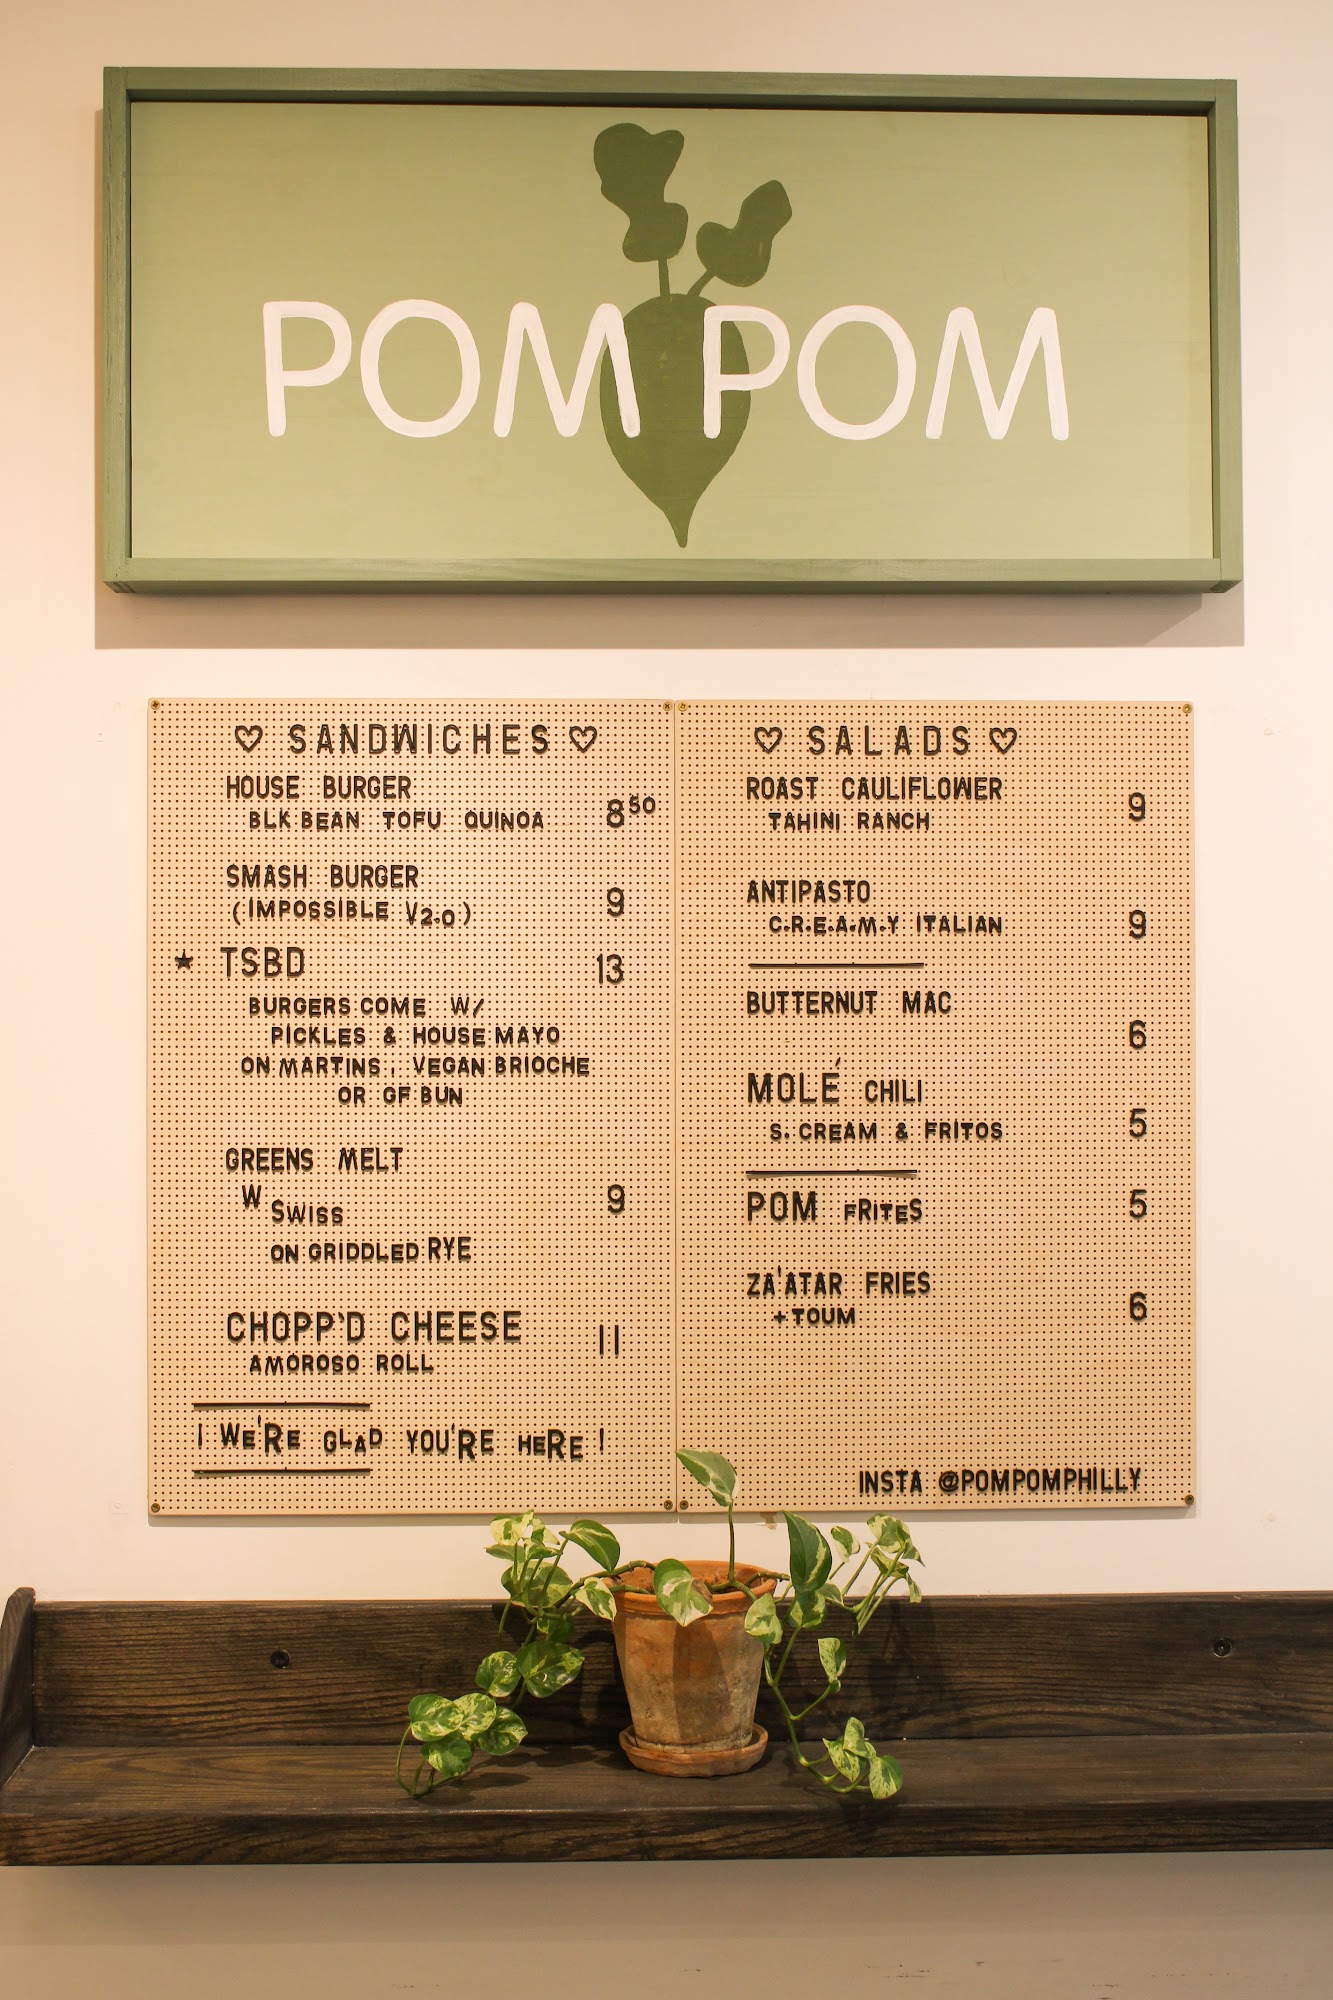 POM POM
♡ SANDWICHES ♡
HOUSE BURGER
BLK BEAN TOFU QUINOA 8 50
SMASH BURGER
(IMPOSSIBLE V2.0) 9
★ TSBD 13
BURGERS COME W/
PICKLES & HOUSE MAYO
ON MARTINS, VEGAN BRIOCHE
OR GF BUN
GREENS MELT
W SWISS 9
ON GRIDDLED RYE
CHOPP'D CHEESE 11
AMOROSO ROLL
¡ WE'RE GLAD YOU'RE HERE !
♡ SALADS ♡
ROAST CAULIFLOWER 9
TAHINI RANCH
ANTIPASTO
C.R.E.A.M.Y ITALIAN 9
BUTTERNUT MAC
6
MOLÉ CHILI
S. CREAM & FRITOS 5
POM FRITES 5
ZA'ATAR FRIES
+ TOUM 6
INSTA @POMPOMPHILLY